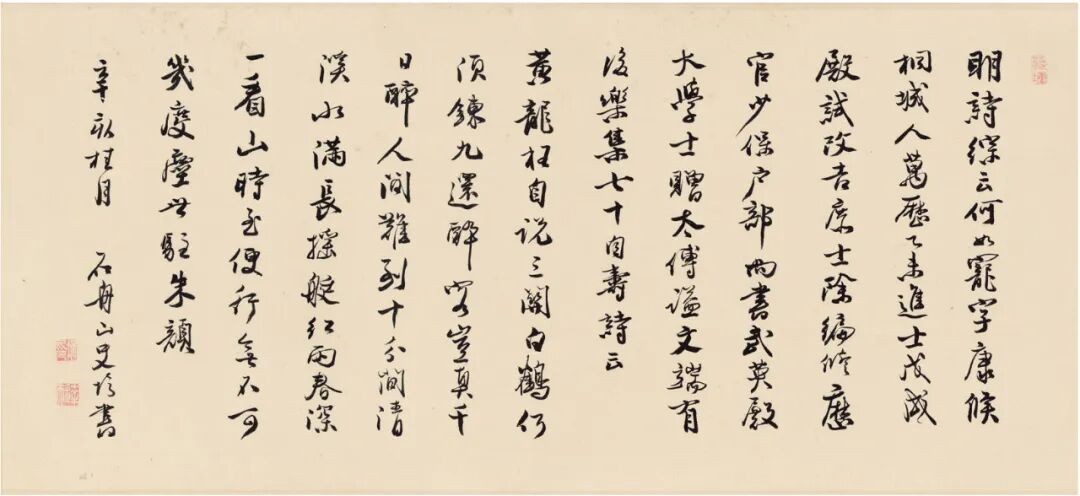 明詩綜云何如寵字康侯
桐城人萬曆乙未進士戊戌
殿試改吉庶士除編修歷
官少保戶部尚書武英殿
大學士贈太傅謚文端有
後樂集七十自壽詩云
黃龍枉自說三關白鶴何
須鍊九還醉客豈真千
日醉人間難到十分閒清
溪水滿長搖艇紅雨春深
一看山時至便行無不可
幾度塵世駐朱顏
辛亥桂月 石舟山史書